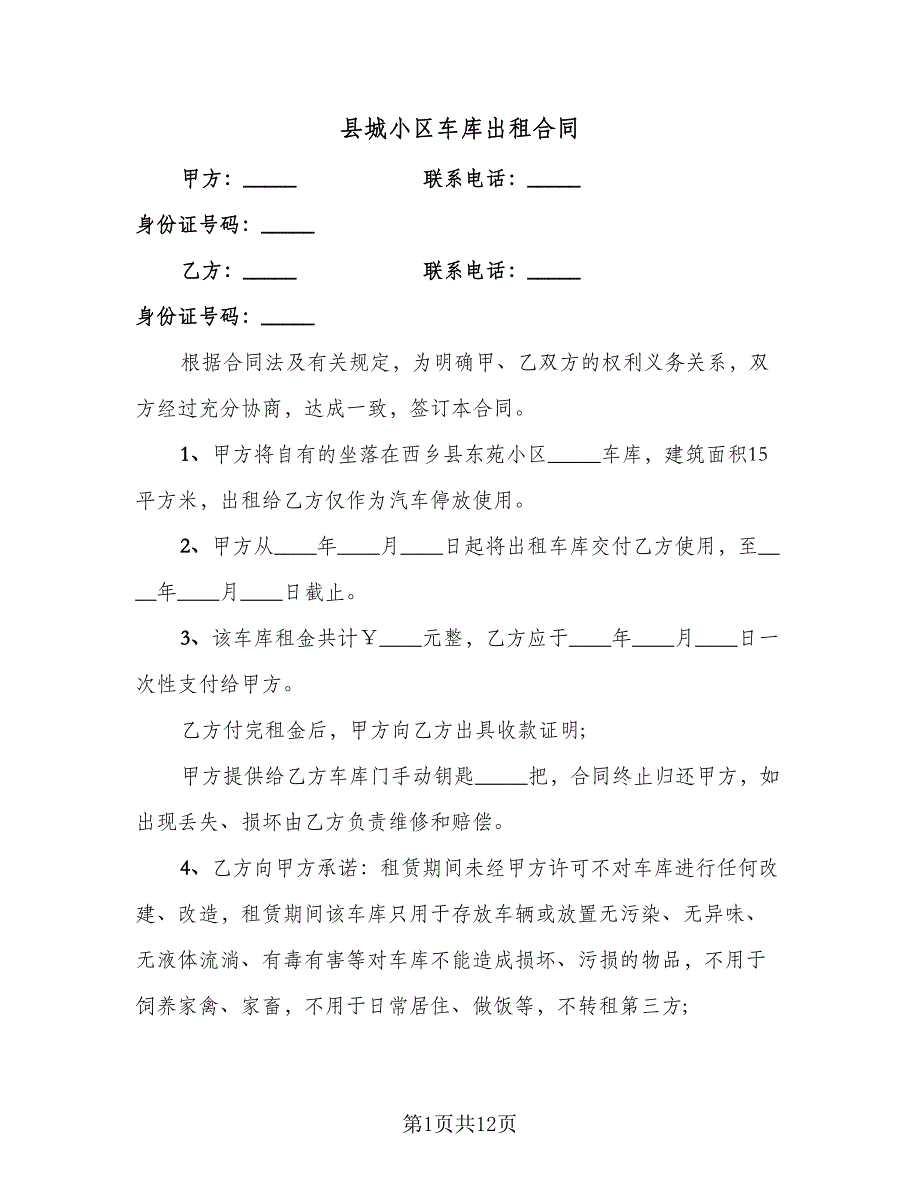 县城小区车库出租合同
甲方：_____ 联系电话：_____
身份证号码：_____
乙方：_____ 联系电话：_____
身份证号码：_____
根据合同法及有关规定，为明确甲、乙双方的权利义务关系，双
方经过充分协商，达成一致，签订本合同。
1、甲方将自有的坐落在西乡县东苑小区_____车库，建筑面积15
平方米，出租给乙方仅作为汽车停放使用。
2、甲方从____年____月____日起将出租车库交付乙方使用，至__
__年____月____日截止。
3、该车库租金共计￥____元整，乙方应于____年____月____日一
次性支付给甲方。
乙方付完租金后，甲方向乙方出具收款证明;
甲方提供给乙方车库门手动钥匙_____把，合同终止归还甲方，如
出现丢失、损坏由乙方负责维修和赔偿。
4、乙方向甲方承诺：租赁期间未经甲方许可不对车库进行任何改
建、改造，租赁期间该车库只用于存放车辆或放置无污染、无异味、
无液体流淌、有毒有害等对车库不能造成损坏、污损的物品，不用于
饲养家禽、家畜，不用于日常居住、做饭等，不转租第三方;
第1页共12页